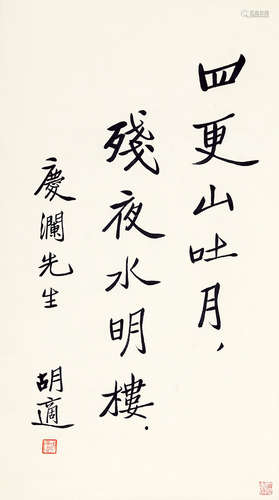 四更山吐月，
殘夜水明樓．
慶瀾先生
胡適